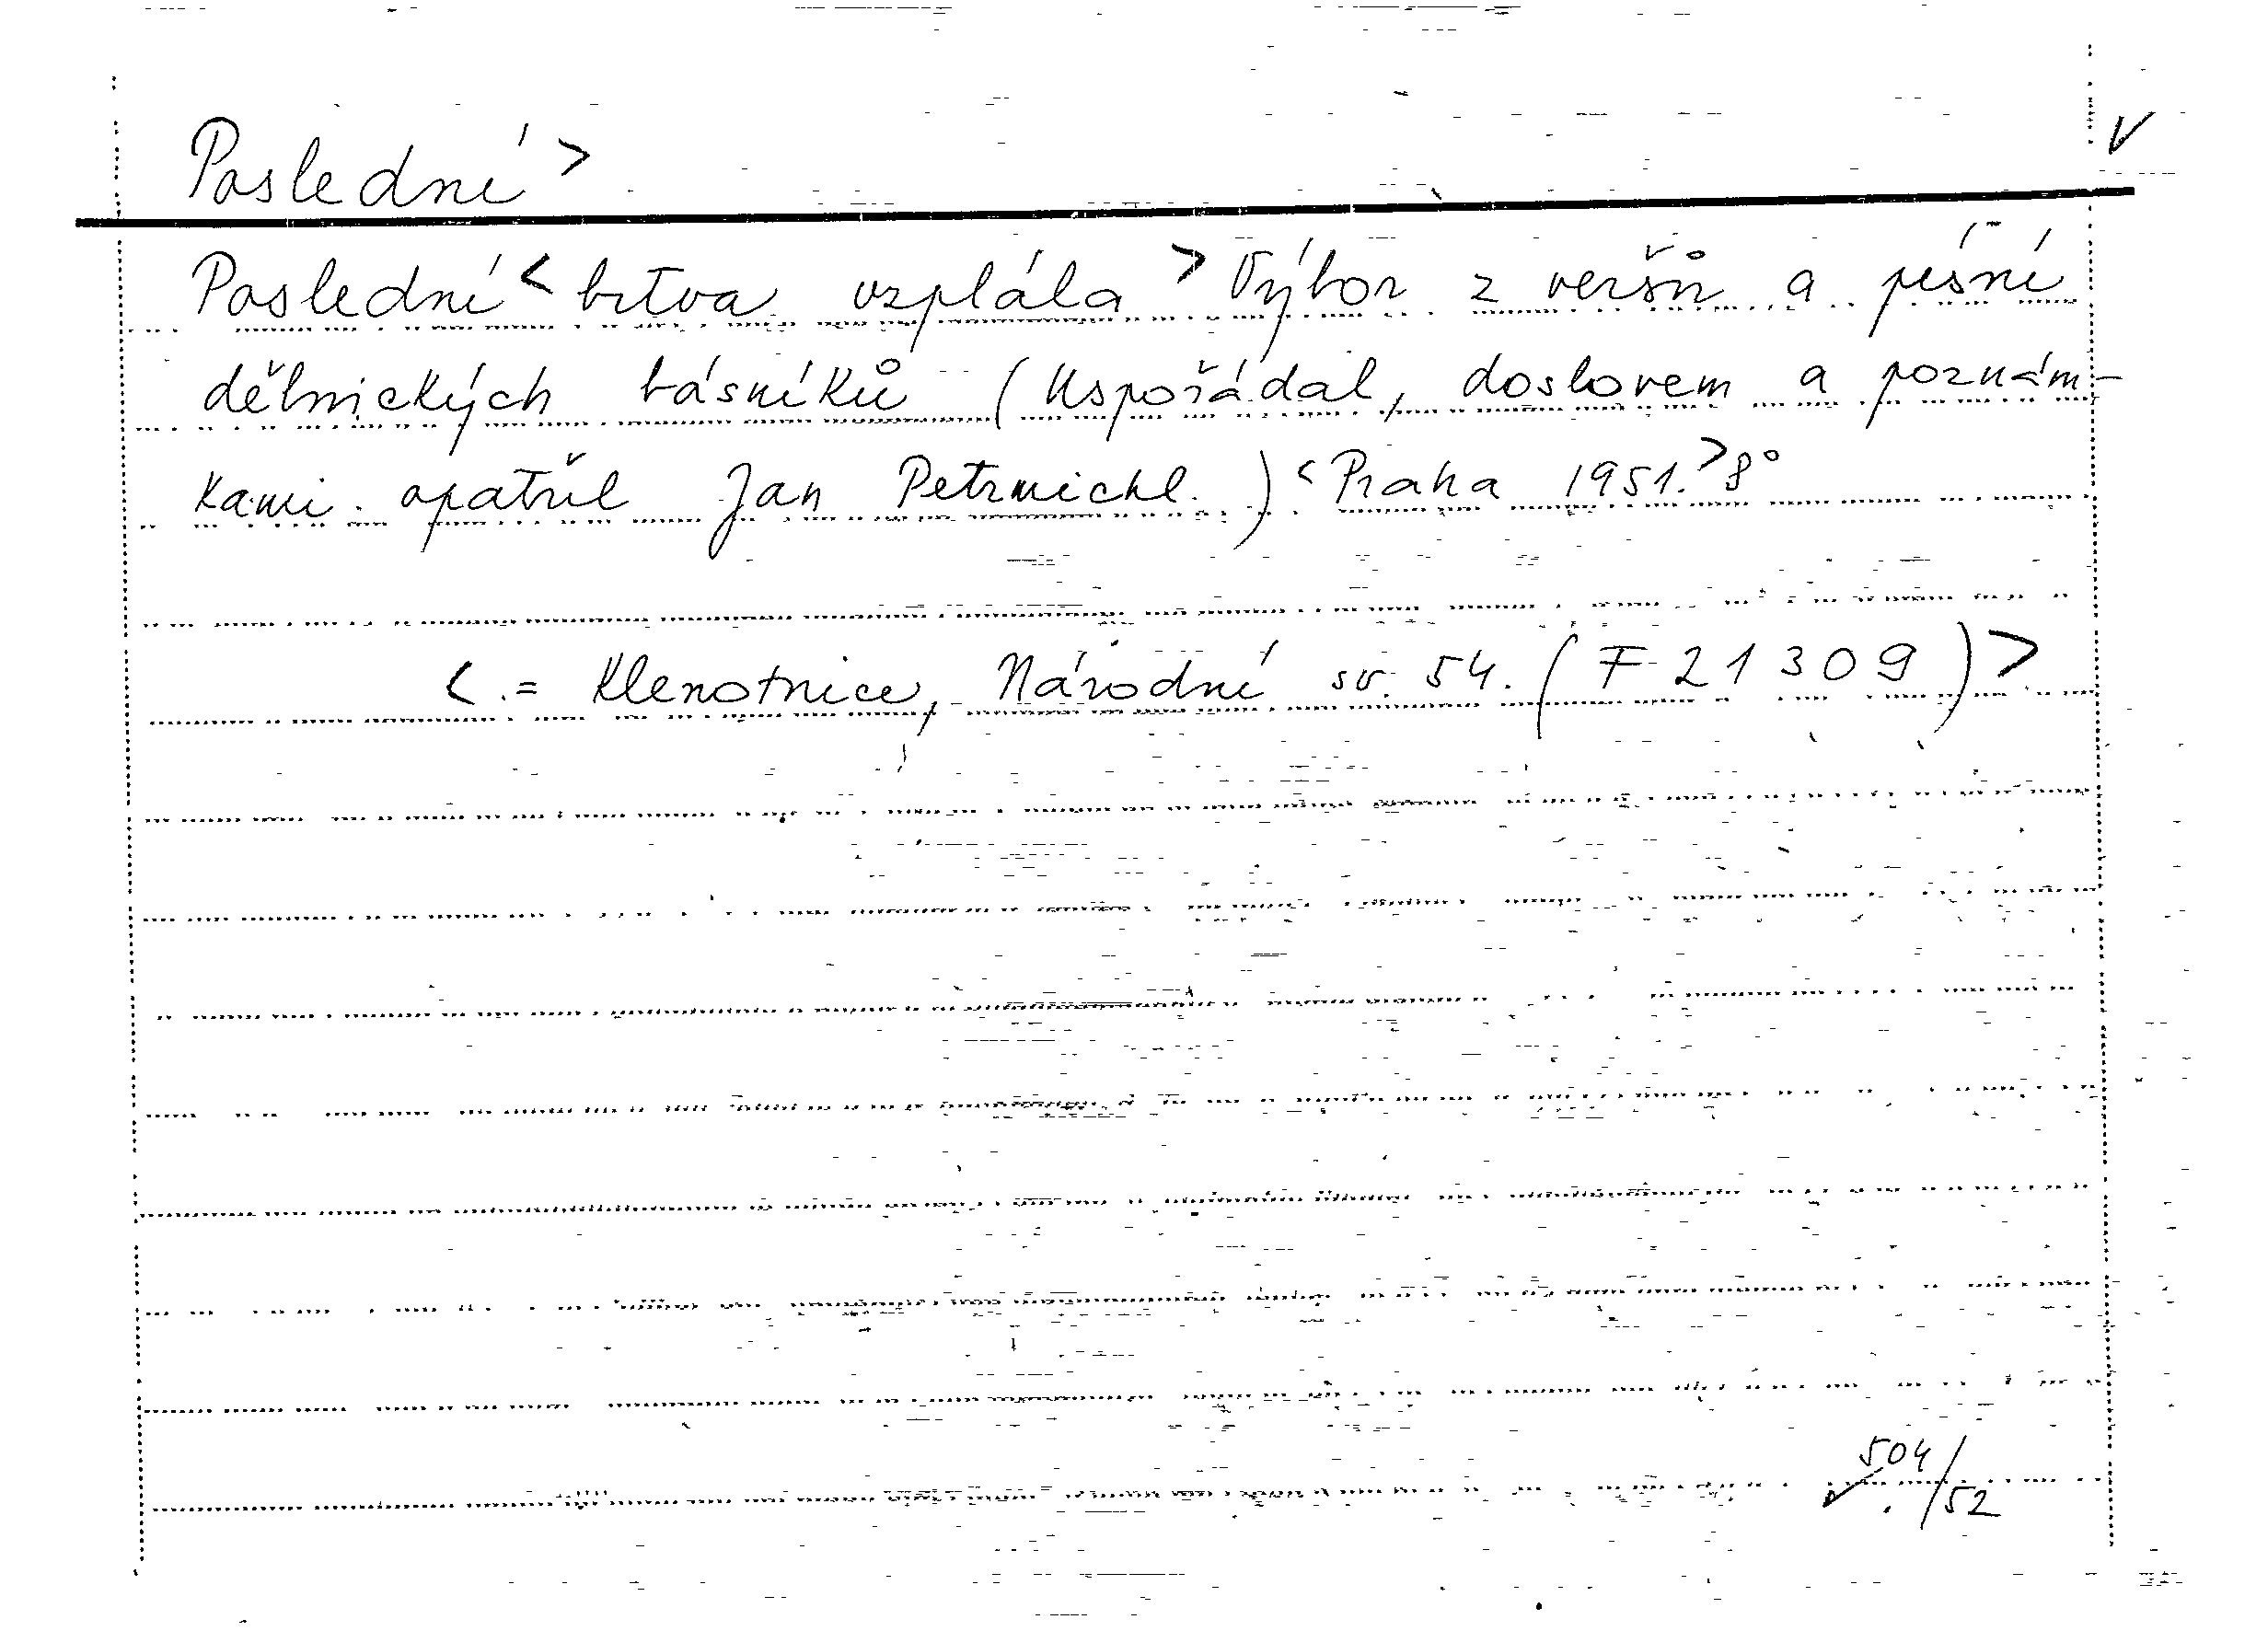 Poslední > V
Poslední < bitva vzplála > Výbor z veršů a písní
dělnických básníků (Uspořádal, doslovem a poznám-
kami opatřil Jan Petrmichl.) < Praha 1951. > 8°
< = Klenotnice, Národní sv. 54. (F 21309) >
504/52